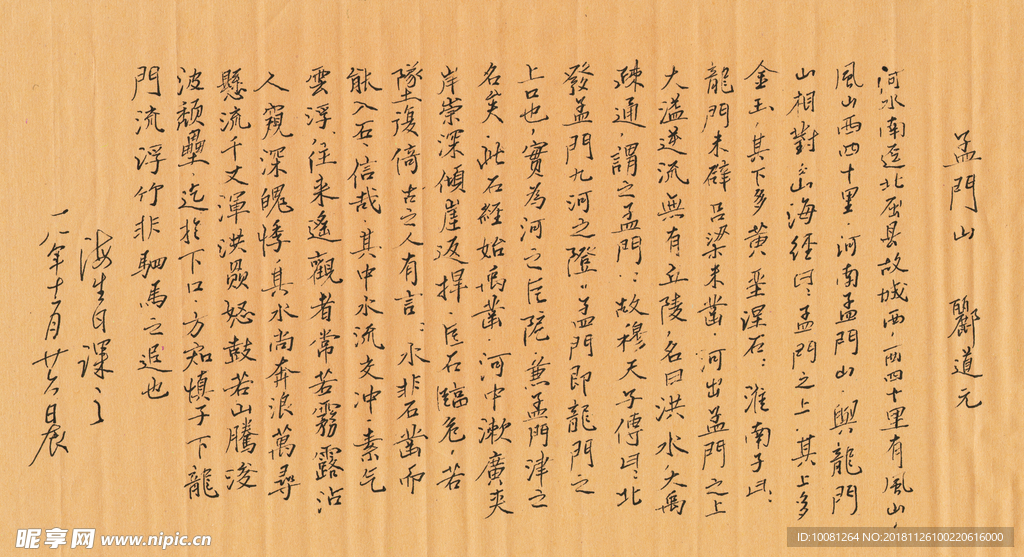 孟門山 酈道元
河水南逕北屈县故城西，西四十里有風山，
風山西四十里·河南孟門山 與龍門
山相對·山海經曰：孟門之上·其上多
金玉，其下多黄垩涅石：淮南子曰：
龍門未辟吕梁未凿 河出孟門之上
大溢逆流無有丘陵，名曰洪水·大禹
疎通，謂之孟門：故穆天子傳曰：北
發孟門九河之隥"孟門即龍門之
上口也，實為河之巨阸，兼孟門津之
名矣·此石經始禹鑿·河中漱廣夾
岸崇深傾崖返捍·巨石臨危，若
墜復倚古之人有言：水非石凿而
能入石·信哉 其中水流交冲·素气
雲浮，往来遙觀者常若霧露沾
人 窺深魄悸·其水尚奔浪萬尋
懸流千丈渾洪贔怒鼓若山騰浚
波頹疊·迄於下口·方知慎子下龍
門流浮竹非駟馬之追也
海生日課之
一八年十一月廿六日晨
昵享网 www.nipic.cn
ID:10081264 NO:20181126100220616000